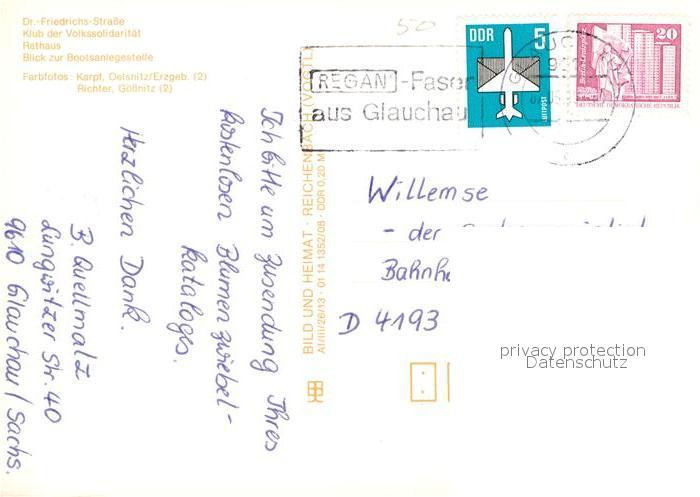 Dr.-Friedrichs-Straße
Klub der Volkssolidarität
Rathaus
Blick zur Bootsanlegestelle
Farbfotos: Karpf, Oelsnitz/Erzgeb. (2)
Richter, Gößnitz (2)
50
REGAN-Faser
aus Glauchau
DDR 5
LUFTPOST
20
DEUTSCHE DEMOKRATISCHE REPUBLIK
BILD UND HEIMAT · REICHENBACH (VOGTL
A1/III/26/13 · 01 14 1352/08 · DDR 0,20 M
Ich bitte um Zusendung Ihres
kostenlosen Blumenzwiebel-
kataloges.
Herzlichen Dank.
B. Quellmalz
Lungwitzer Str. 40
9610 Glauchau / Sachs.
Willemse
- der
Bahnh
D 4193
privacy protection
Datenschutz